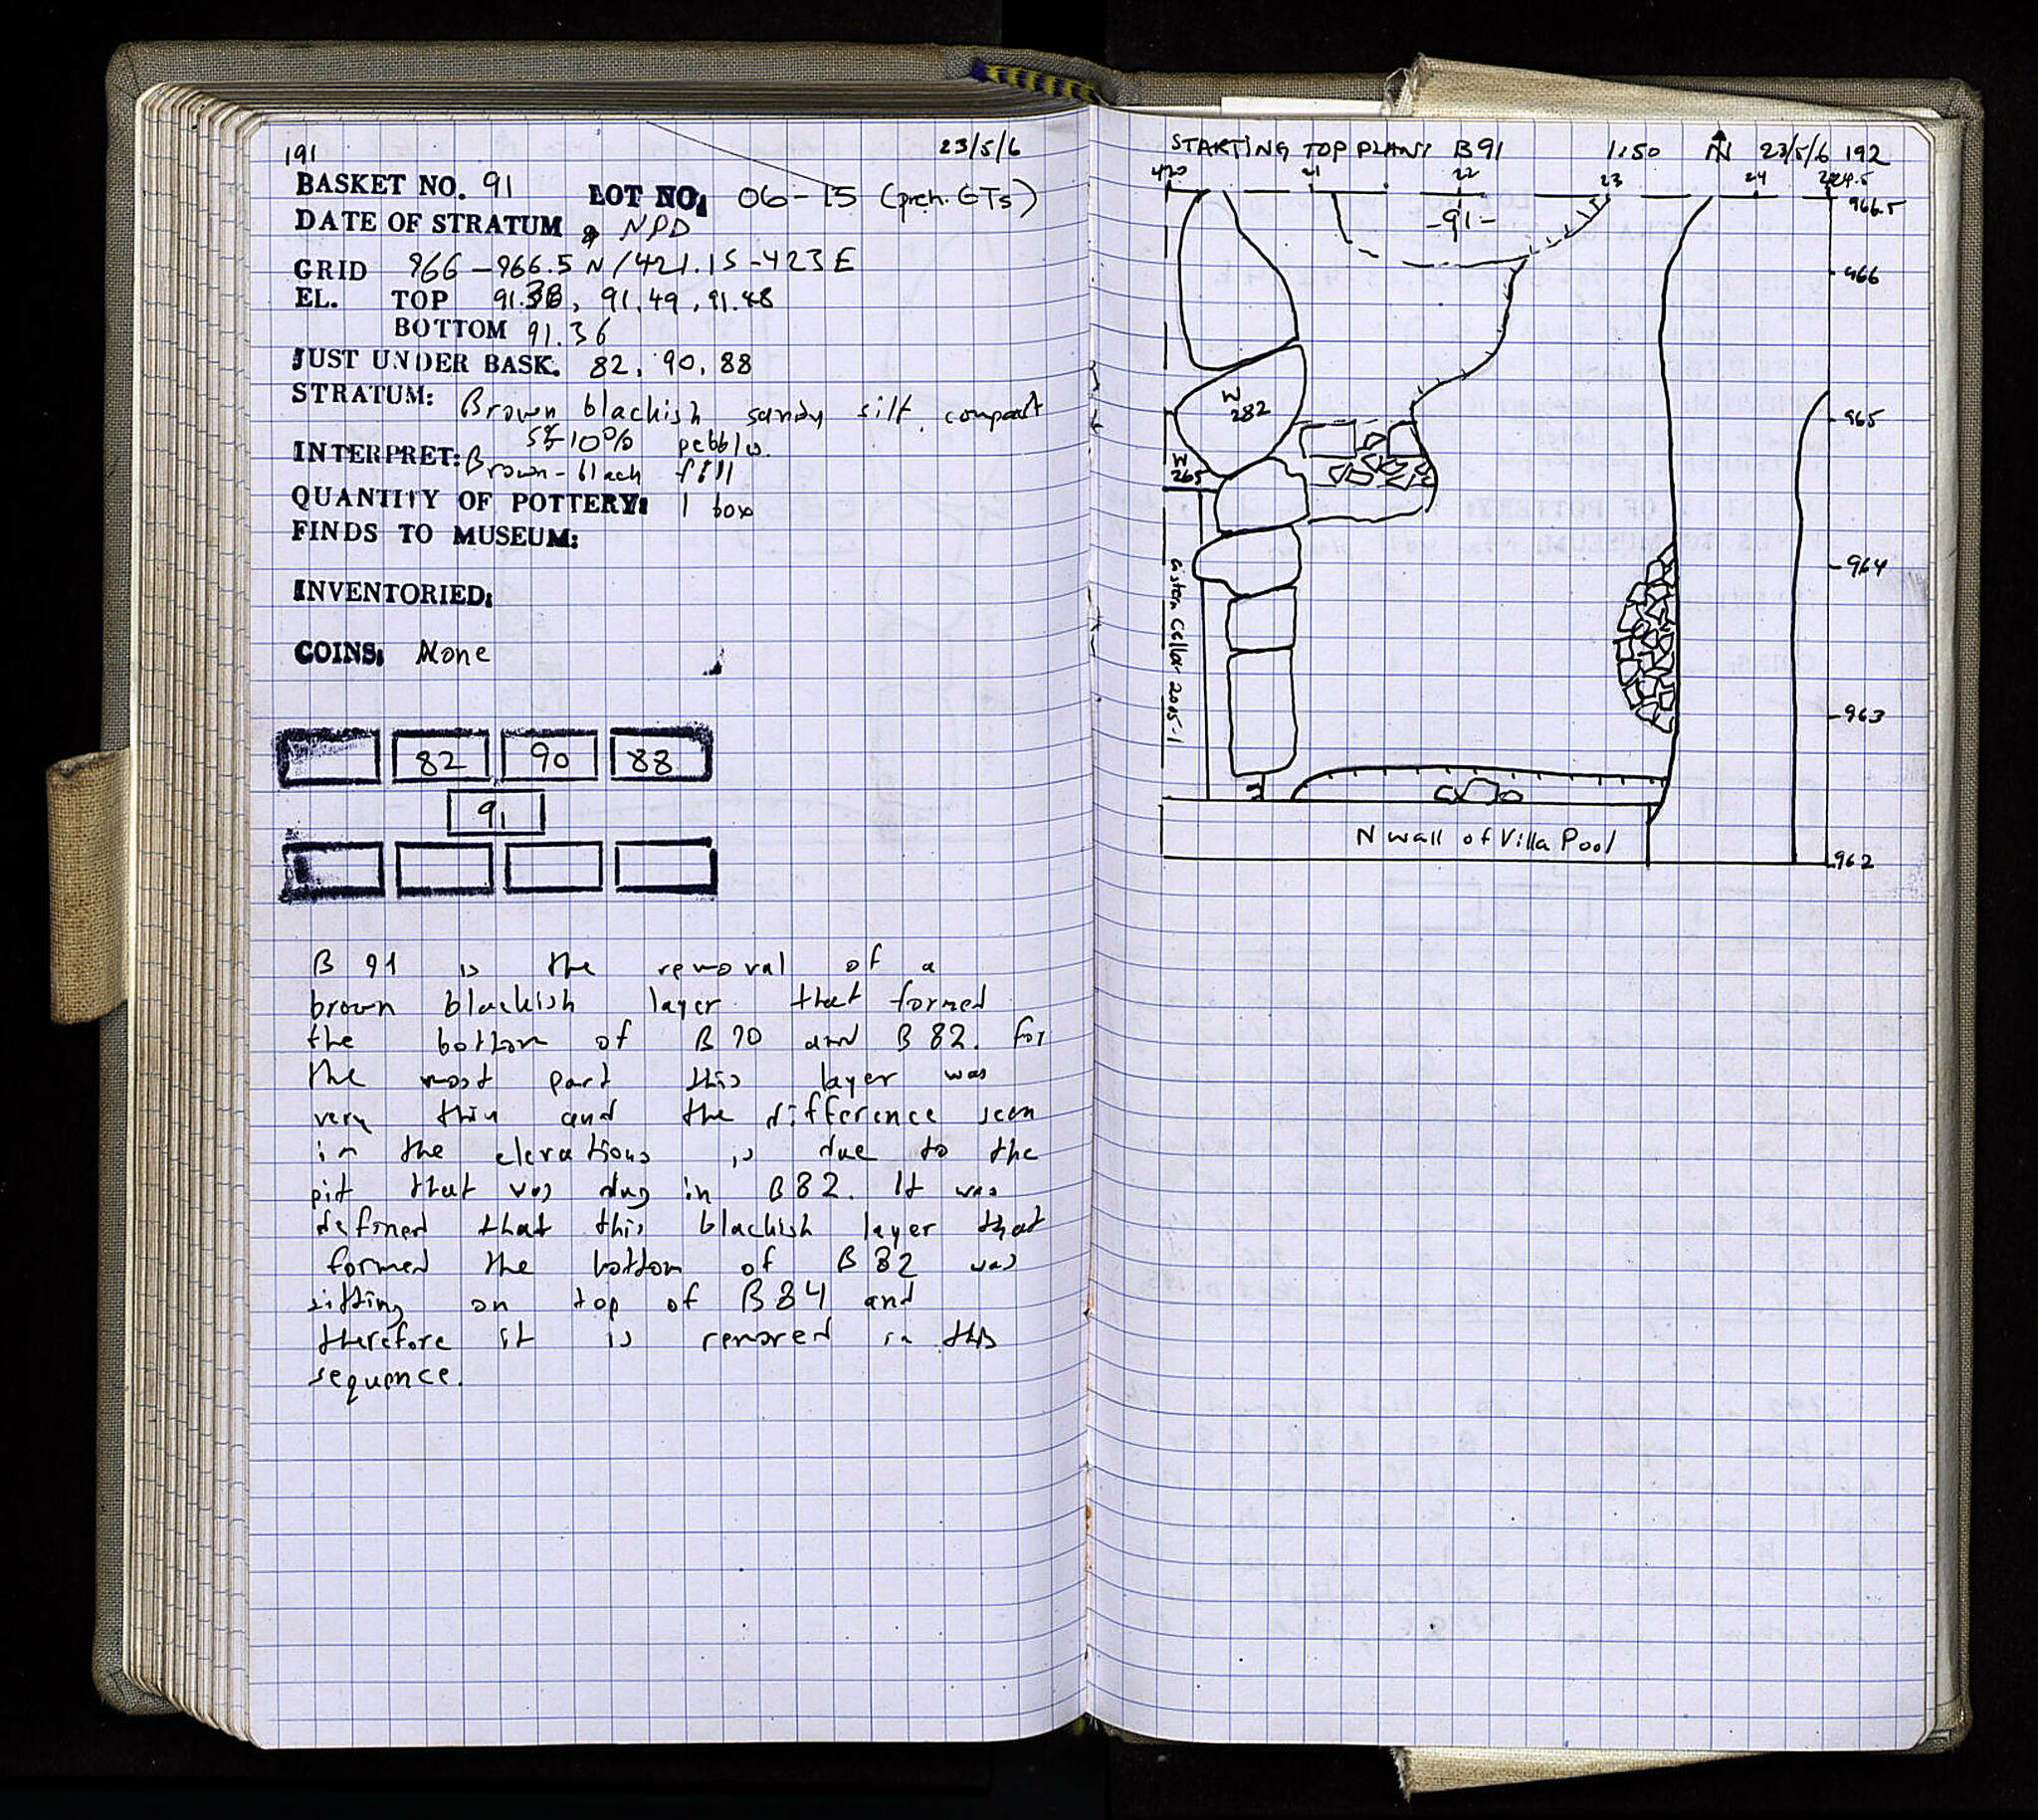 191
23/5/6
BASKET NO. 91 LOT NO: 06-15 (preh. GTs)
DATE OF STRATUM NPD
GRID 966-966.5 N/421.15-423 E
EL. TOP 91.38, 91.49, 91.48
BOTTOM 91.36
JUST UNDER BASK. 82, 90, 88
STRATUM: Brown blackish sandy silt, compact
5-10% pebbles.
INTERPRET: Brown-black fill
QUANTITY OF POTTERY: 1 box
FINDS TO MUSEUM:
INVENTORIED:
COINS: None
82 90 88
91
B 91 is the removal of a
brown blackish layer that formed
the bottom of B 90 and B 82. For
the most part this layer was
very thin and the difference seen
in the elevations is due to the
pit that was dug in B82. It was
defined that this blackish layer that
formed the bottom of B 82 was
sitting on top of B84 and
therefore it is removed in this
sequence.
STARTING TOP PLAN: B91 1:50 N 23/5/6 192
420 21 22 23 24 424.5
966.5
-91-
966
W
282
965
W
265
964
Cistern Cellar 2005-1
963
N wall of Villa Pool
962